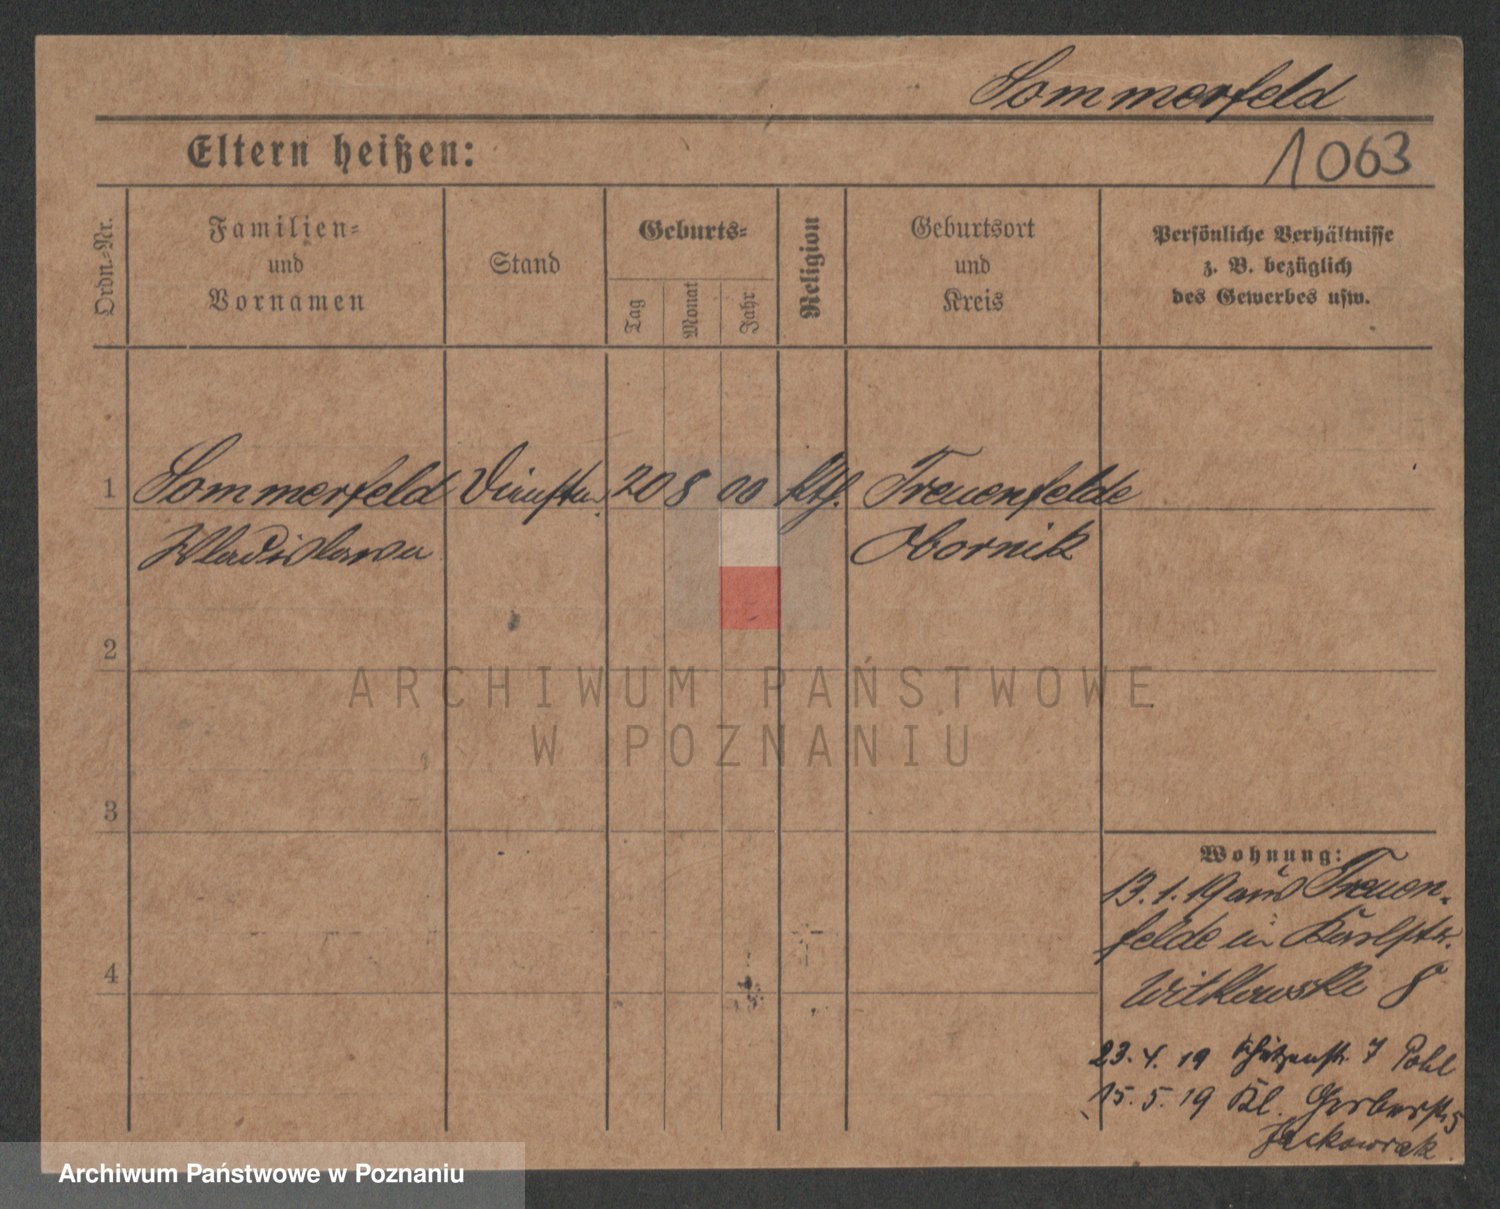 Sommerfeld
Eltern heißen:
1063
Ordn.-Nr.
Familien-
und
Vornamen
Stand
Geburts-
Tag
Monat
Jahr
Religion
Geburtsort
und
Kreis
Persönliche Verhältnisse
z. B. bezüglich
des Gewerbes usw.
1 Sommerfeld 20 8 00 kth. Treuenfelde
Wladislawa Obornik
2
ARCHIWUM PAŃSTWOWE
W POZNANIU
3
Wohnung:
13.1.19 aus Treuen-
felde in
Witkowski 8
4
23.4.19 Schützenstr. 7 Pohl
15.5.19 Kl. Gerberstr. 5
Jackowiak
Archiwum Państwowe w Poznaniu